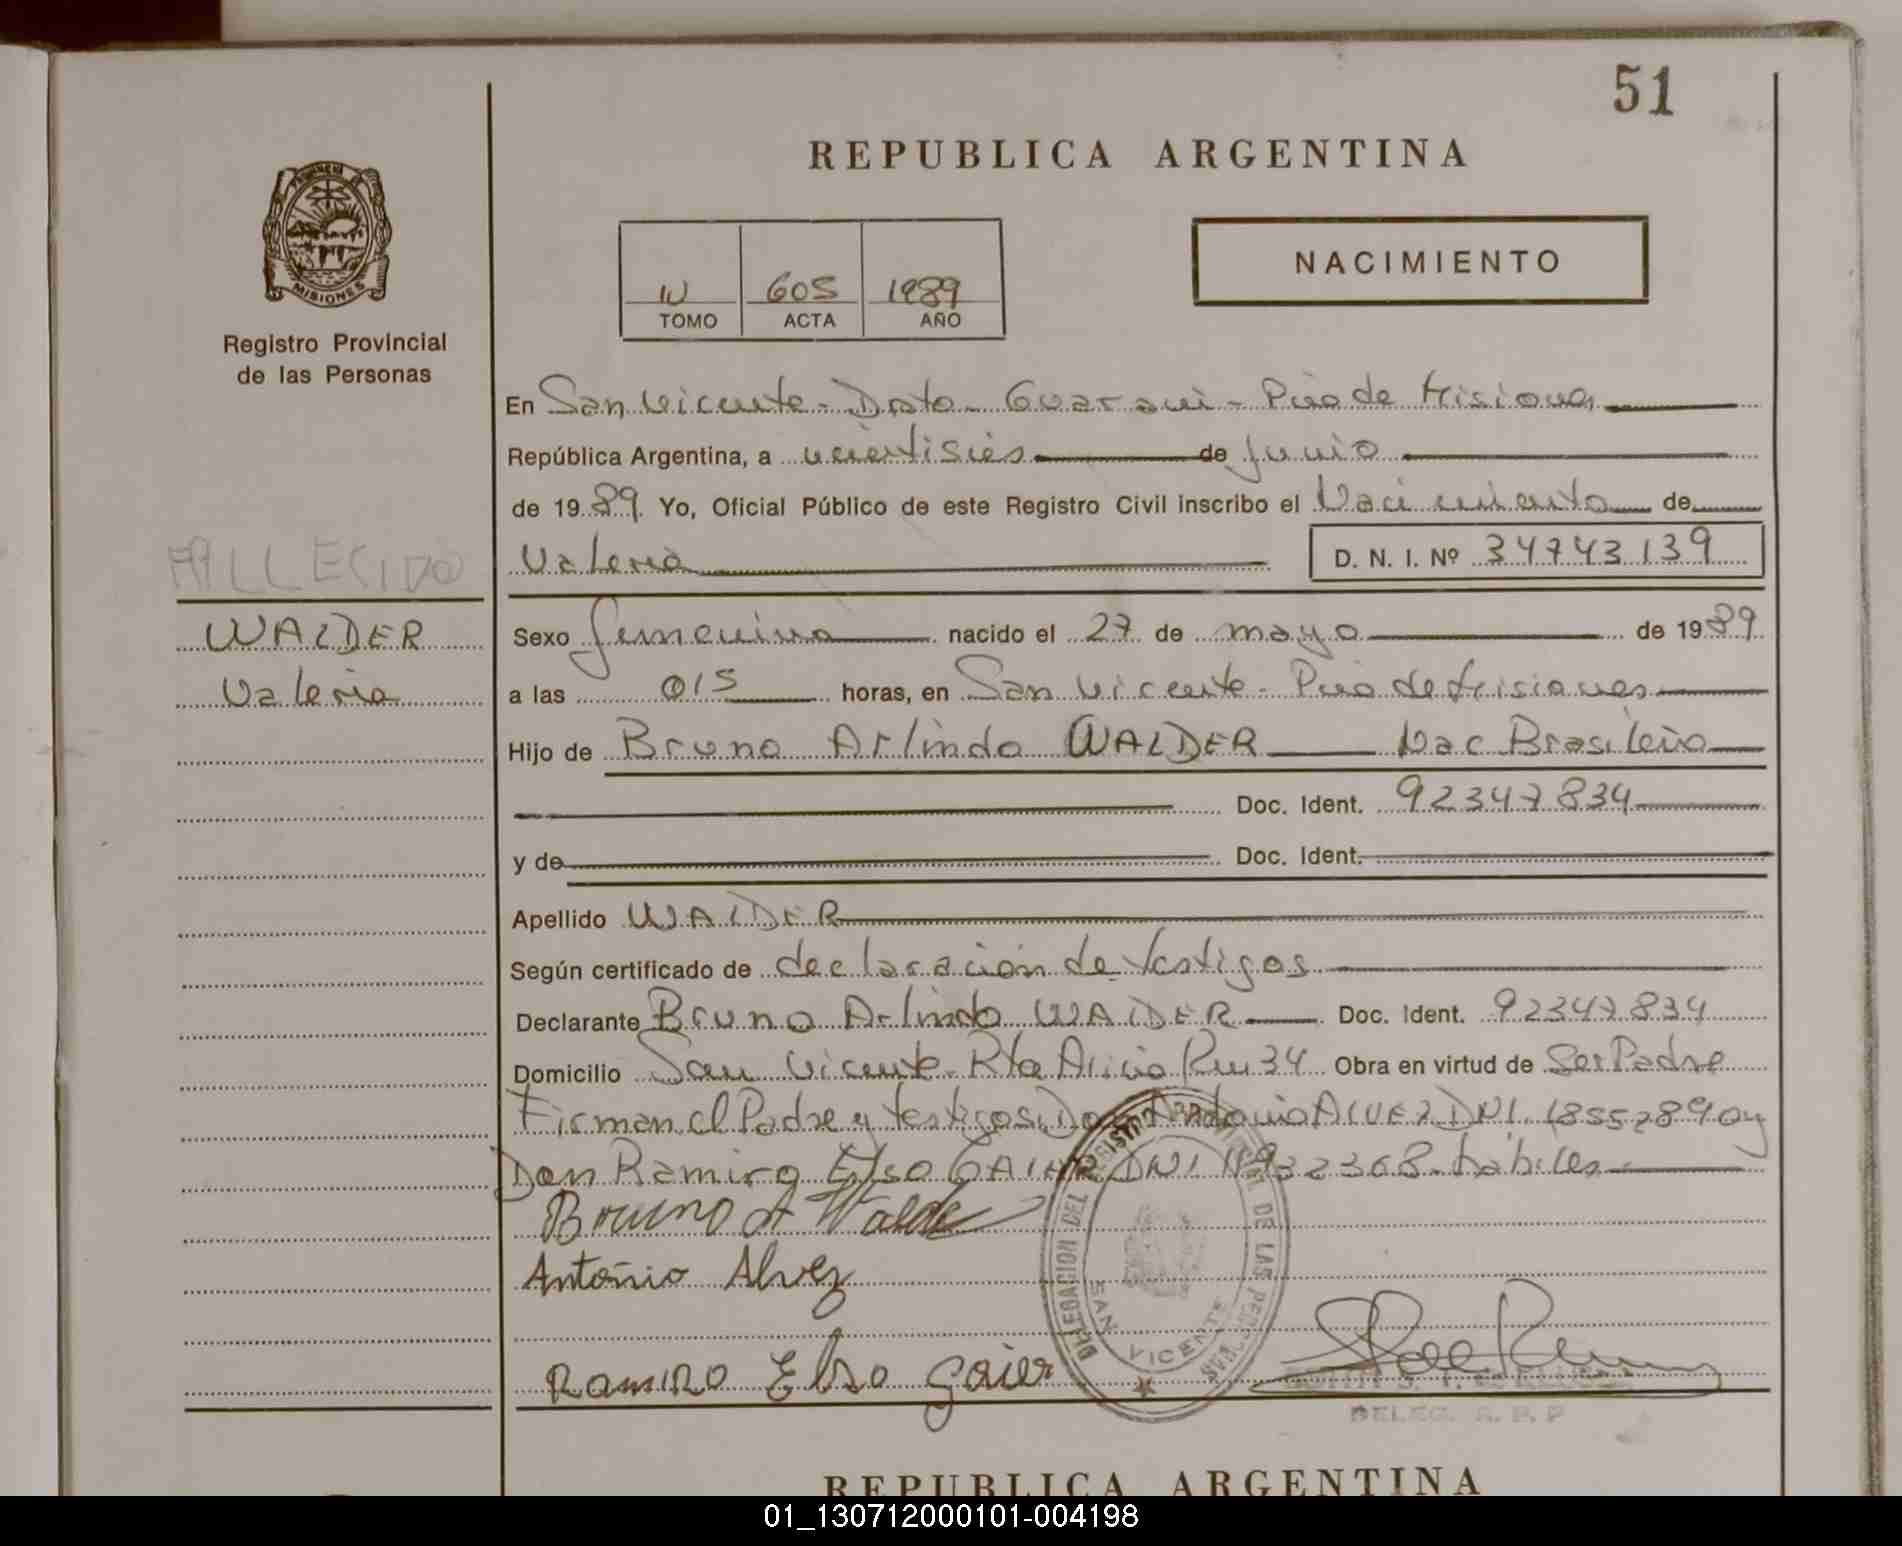 51
REPUBLICA ARGENTINA
PROVINCIA DE
MISIONES
Registro Provincial
de las Personas
IV 605 1989
TOMO ACTA AÑO
NACIMIENTO
En San Vicente - Dpto. Guarani - Pcia de Misiones
República Argentina, a veintiseis de Junio
de 1989. Yo, Oficial Público de este Registro Civil inscribo el Nacimiento de
Valeria D. N. I. Nº 34743139
FALLECIDO
WALDER
Valeria
Sexo femenino nacido el 27 de mayo de 1989
a las 015 horas, en San Vicente - Pcia de Misiones
Hijo de Bruno Arlindo WALDER Nac Brasileño
Doc. Ident. 92347834
y de Doc. Ident.
Apellido WALDER
Según certificado de declaración de testigos
Declarante Bruno Arlindo WALDER Doc. Ident. 92347834
Domicilio San Vicente - Rta Alicia Km 34 Obra en virtud de Ser Padre
Firman el Padre y testigos: Don Antonio ALVEZ DNI. 18552890 y
Don Ramiro Elso GAIER DNI 11932368 - hábiles
Bruno A Walder
Antonio Alvez
Ramiro Elso Gaier
DELEGACION DEL REGISTRO PROVINCIAL DE LAS PERSONAS
SAN VICENTE
DELEG. R. P. P
REPUBLICA ARGENTINA
01_130712000101-004198